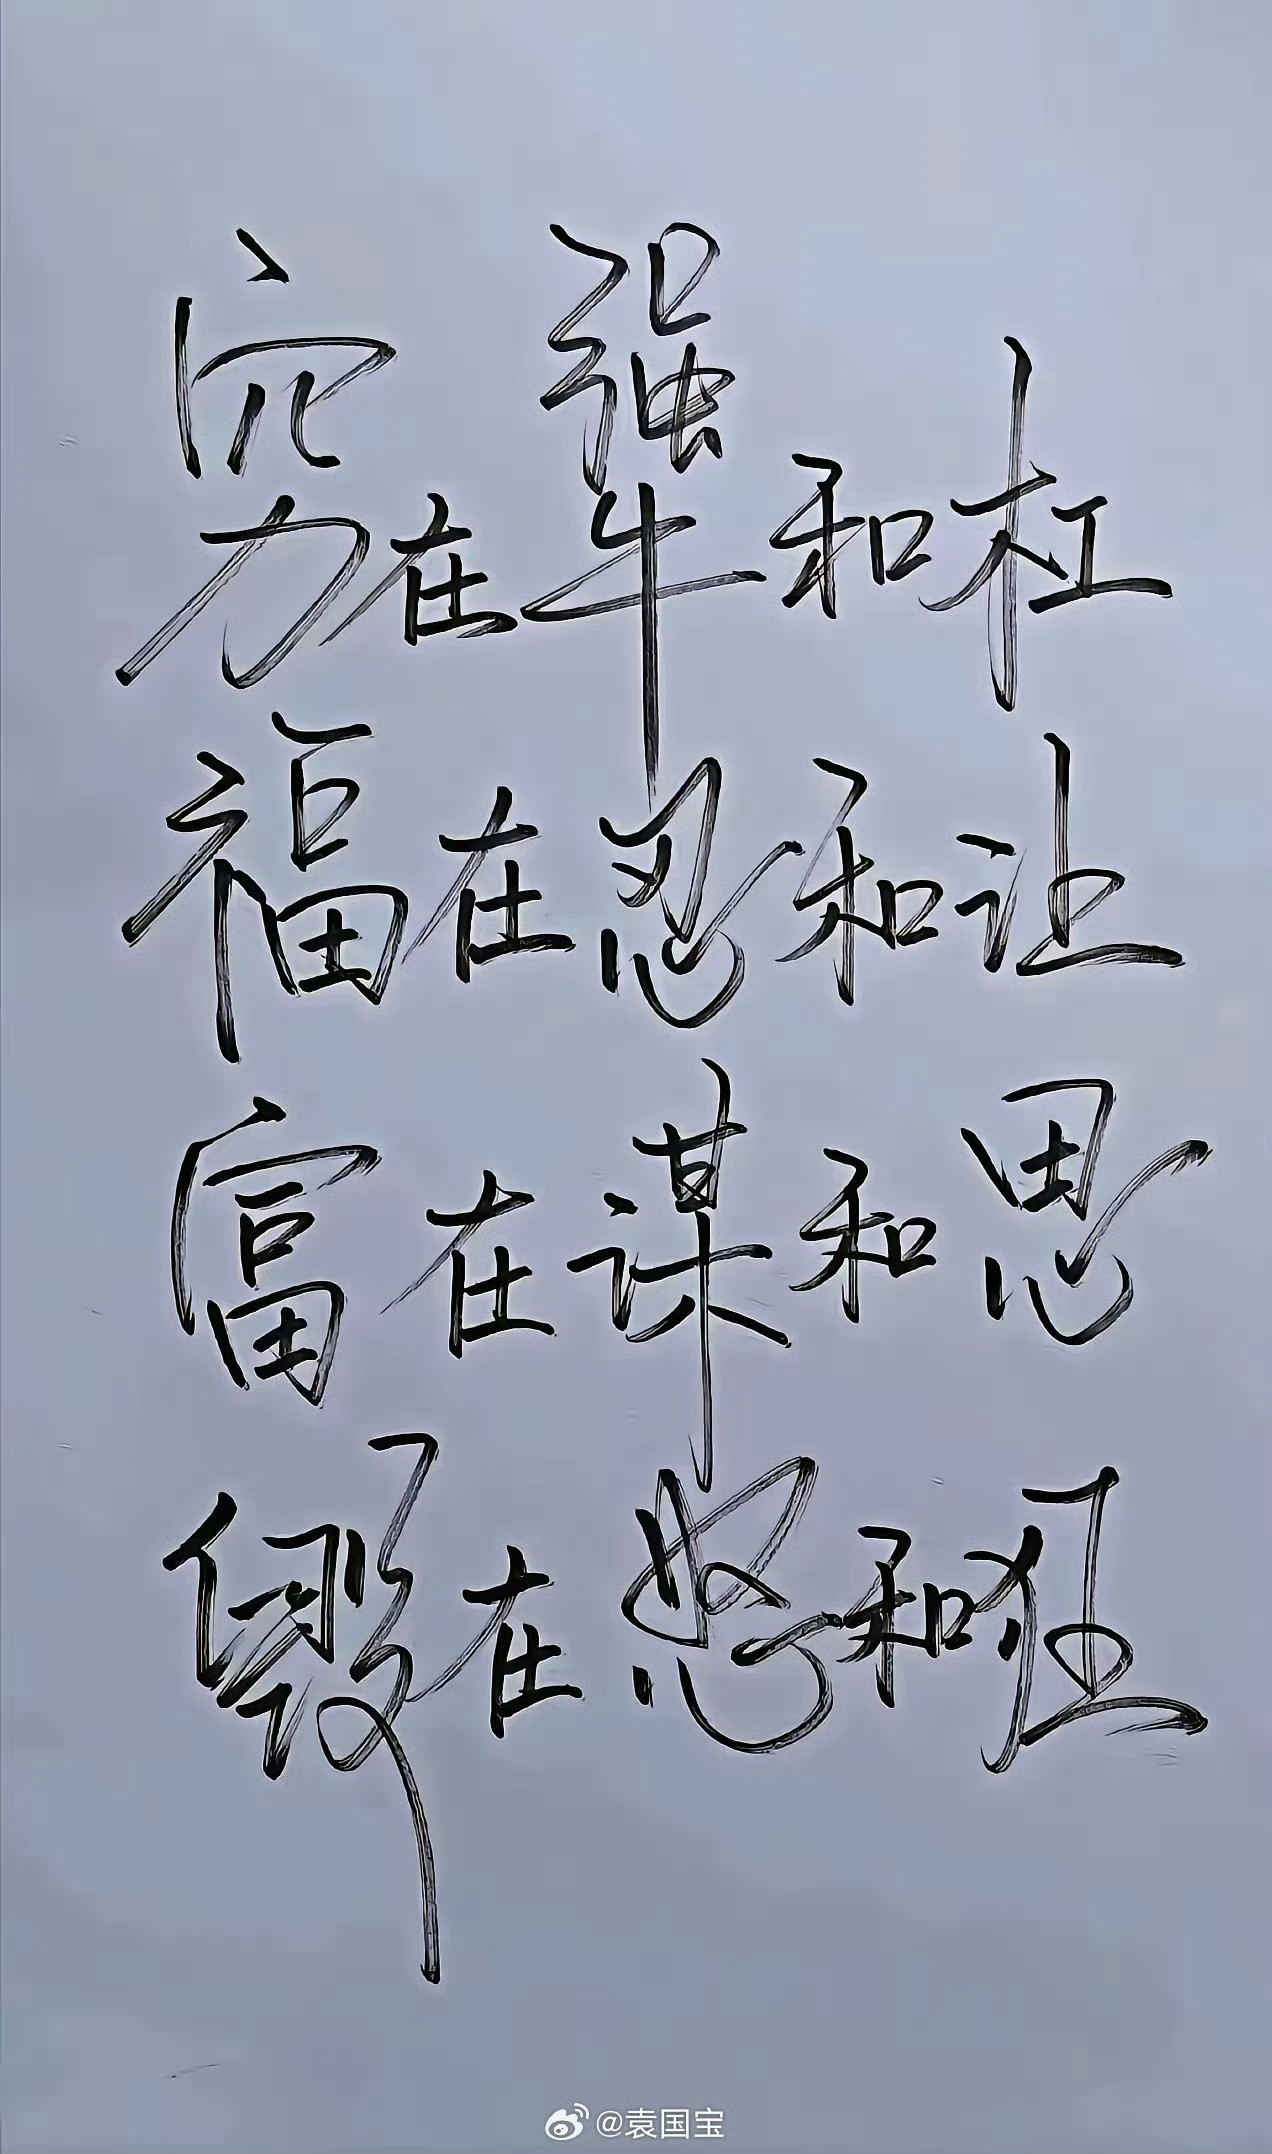 穷在犟和杠
福在忍和让
富在谋和思
毁在怒和狂
@袁国宝